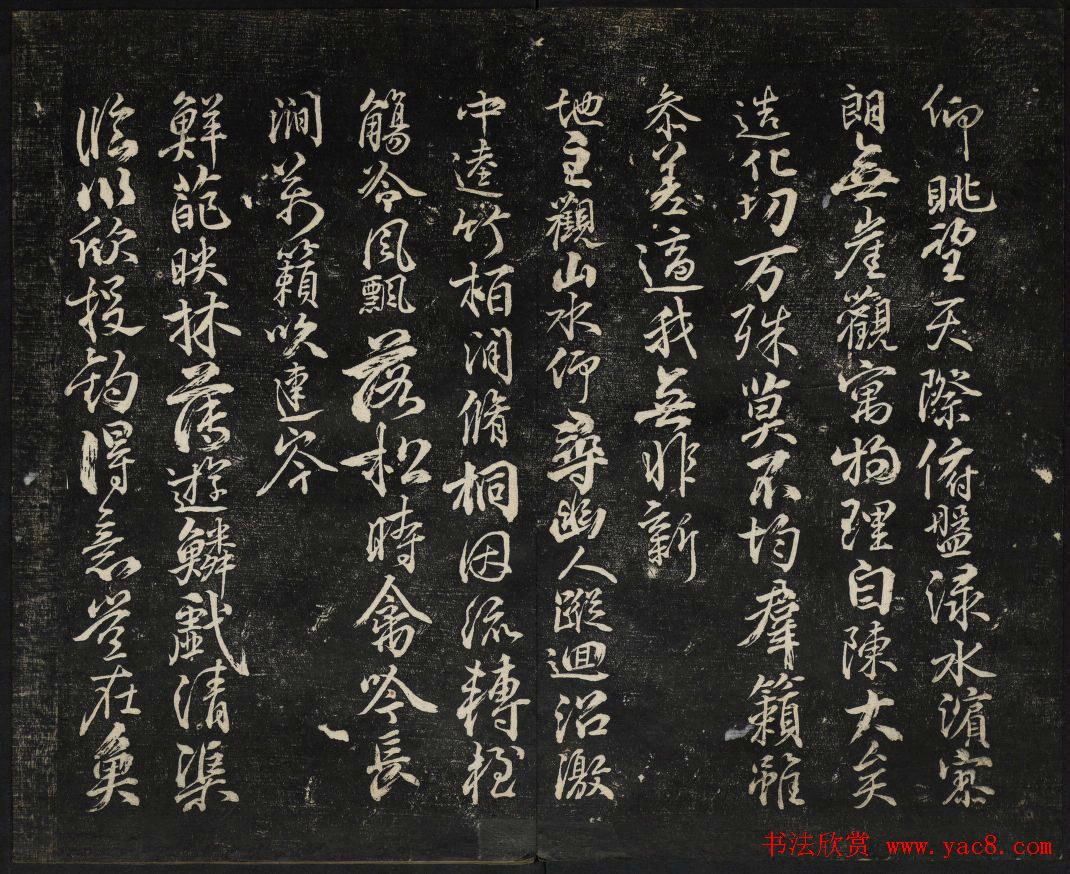 仰眺望天際俯盤淥水濵寥
朗無崖觀寓物理自陳大矣
造化切万殊莫不均羣籟雖
叅差適我無非新
地主觀山水仰尋幽人蹤迴沼激
中逵竹栢間脩桐因流轉輕
觴冷風飄落松時禽吟長
澗萬籟吹連岑
鮮葩映林薄遊鱗戲清渠
臨川欣投釣得意豈在魚
书法欣赏 www.yac8.com